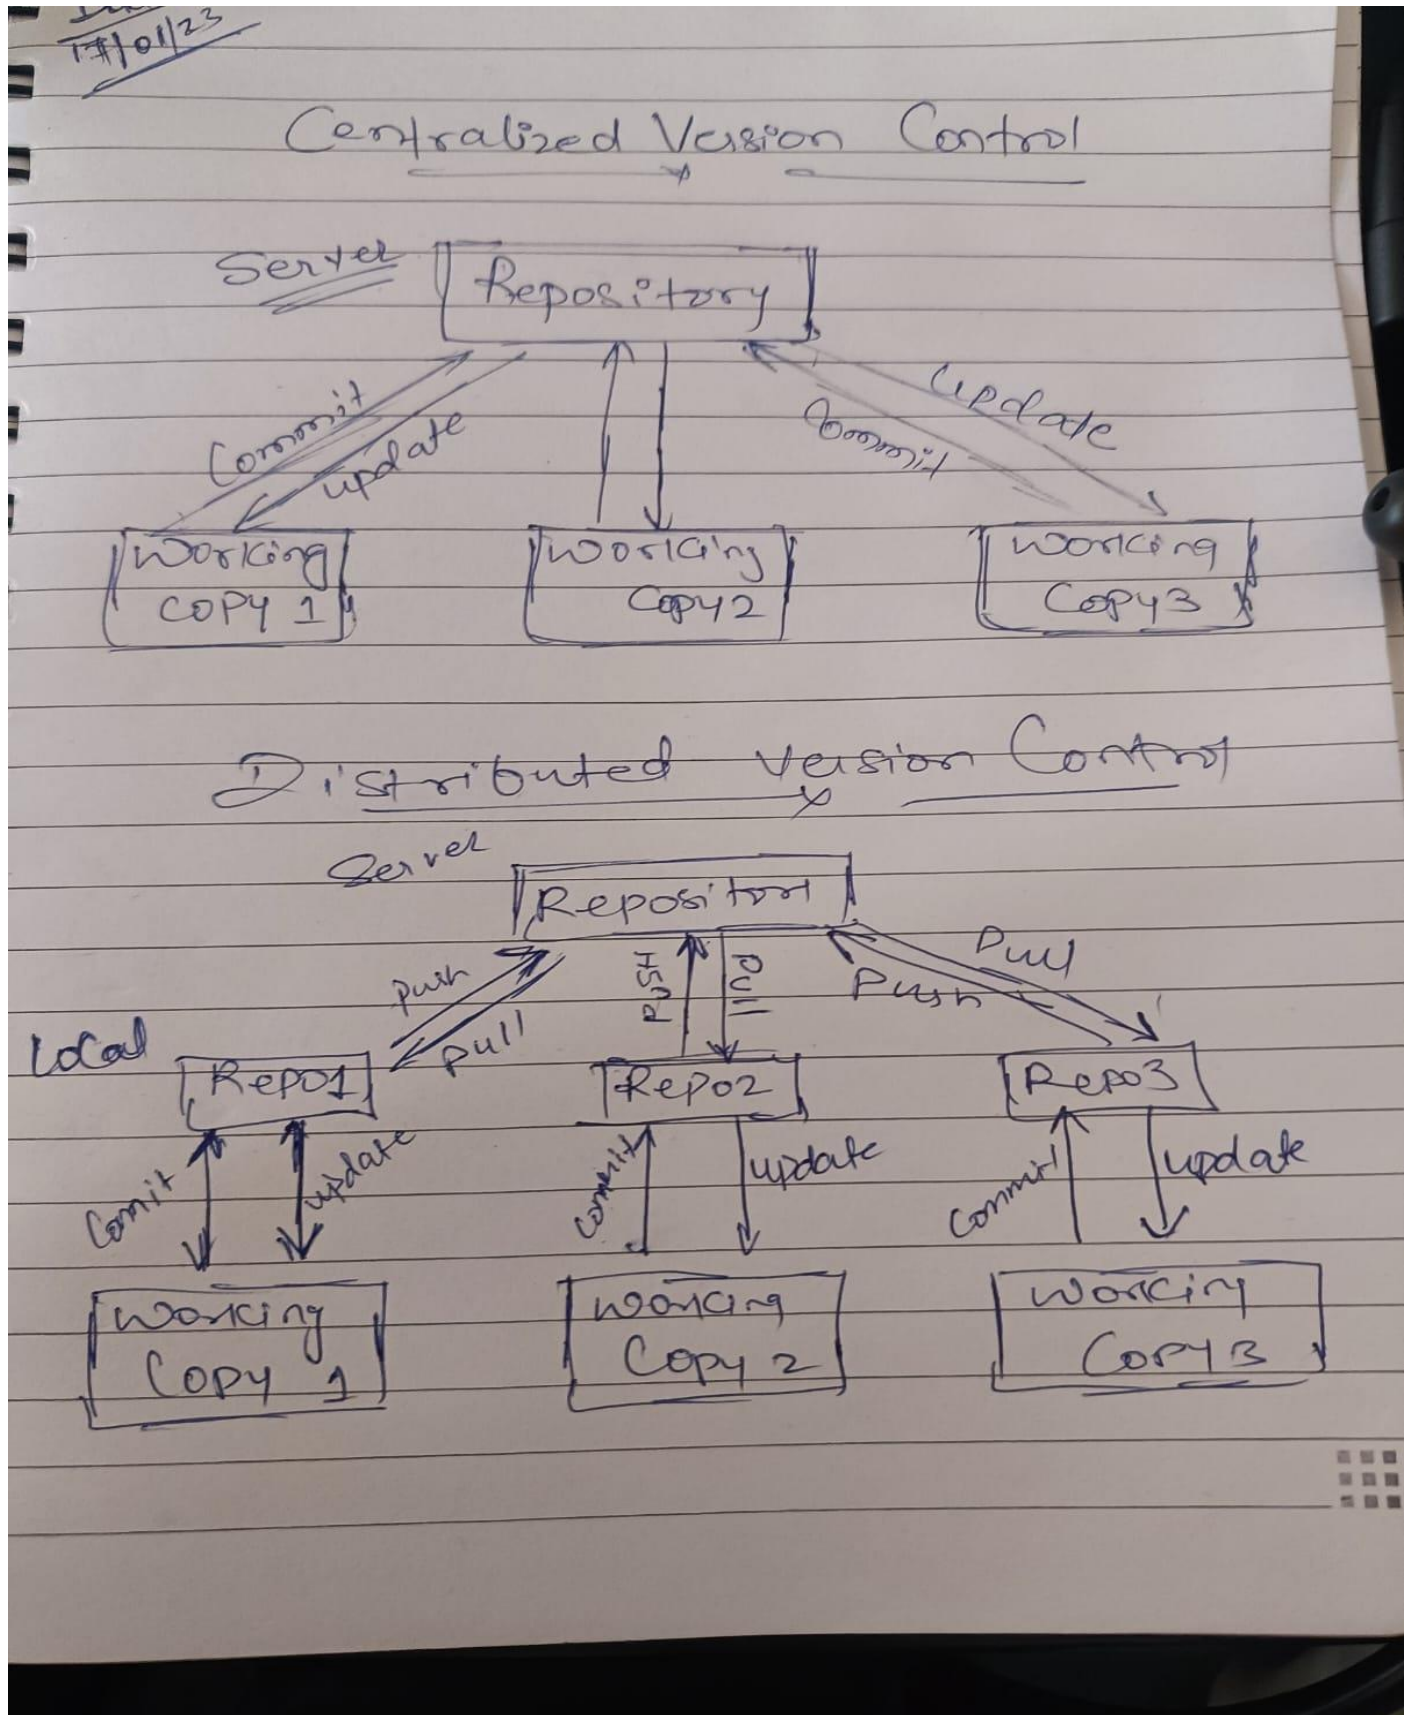 17/01/23
Centralized Version Control
Server
Repository
Commit
update
Commit
update
Working
Copy 1
Working
Copy 2
Working
Copy 3
Distributed Version Control
Server
Repositor
push
pull
PUSH
Pull
Push
Pull
Local
Repo1
Repo2
Repo3
Commit
update
Commit
update
Commit
update
Working
Copy 1
Working
Copy 2
Working
Copy 3